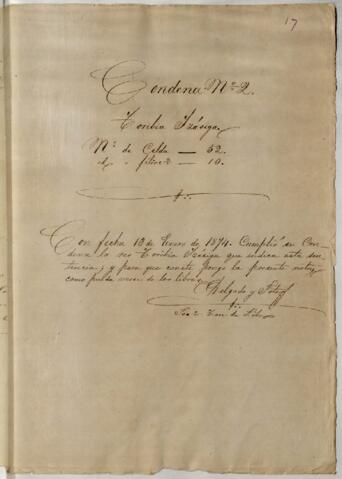 17
Condena No. 2.
Toribia Izásiga.
No. de Celda — 52.
id. " filiac — 10.
Con fecha 13 de Enero de 1874. Cumplió su Con-
dena la reo Toribia Izásiga que indica esta sen-
tencia; y para que conste pongo la presente
como de los libros
Delgado y